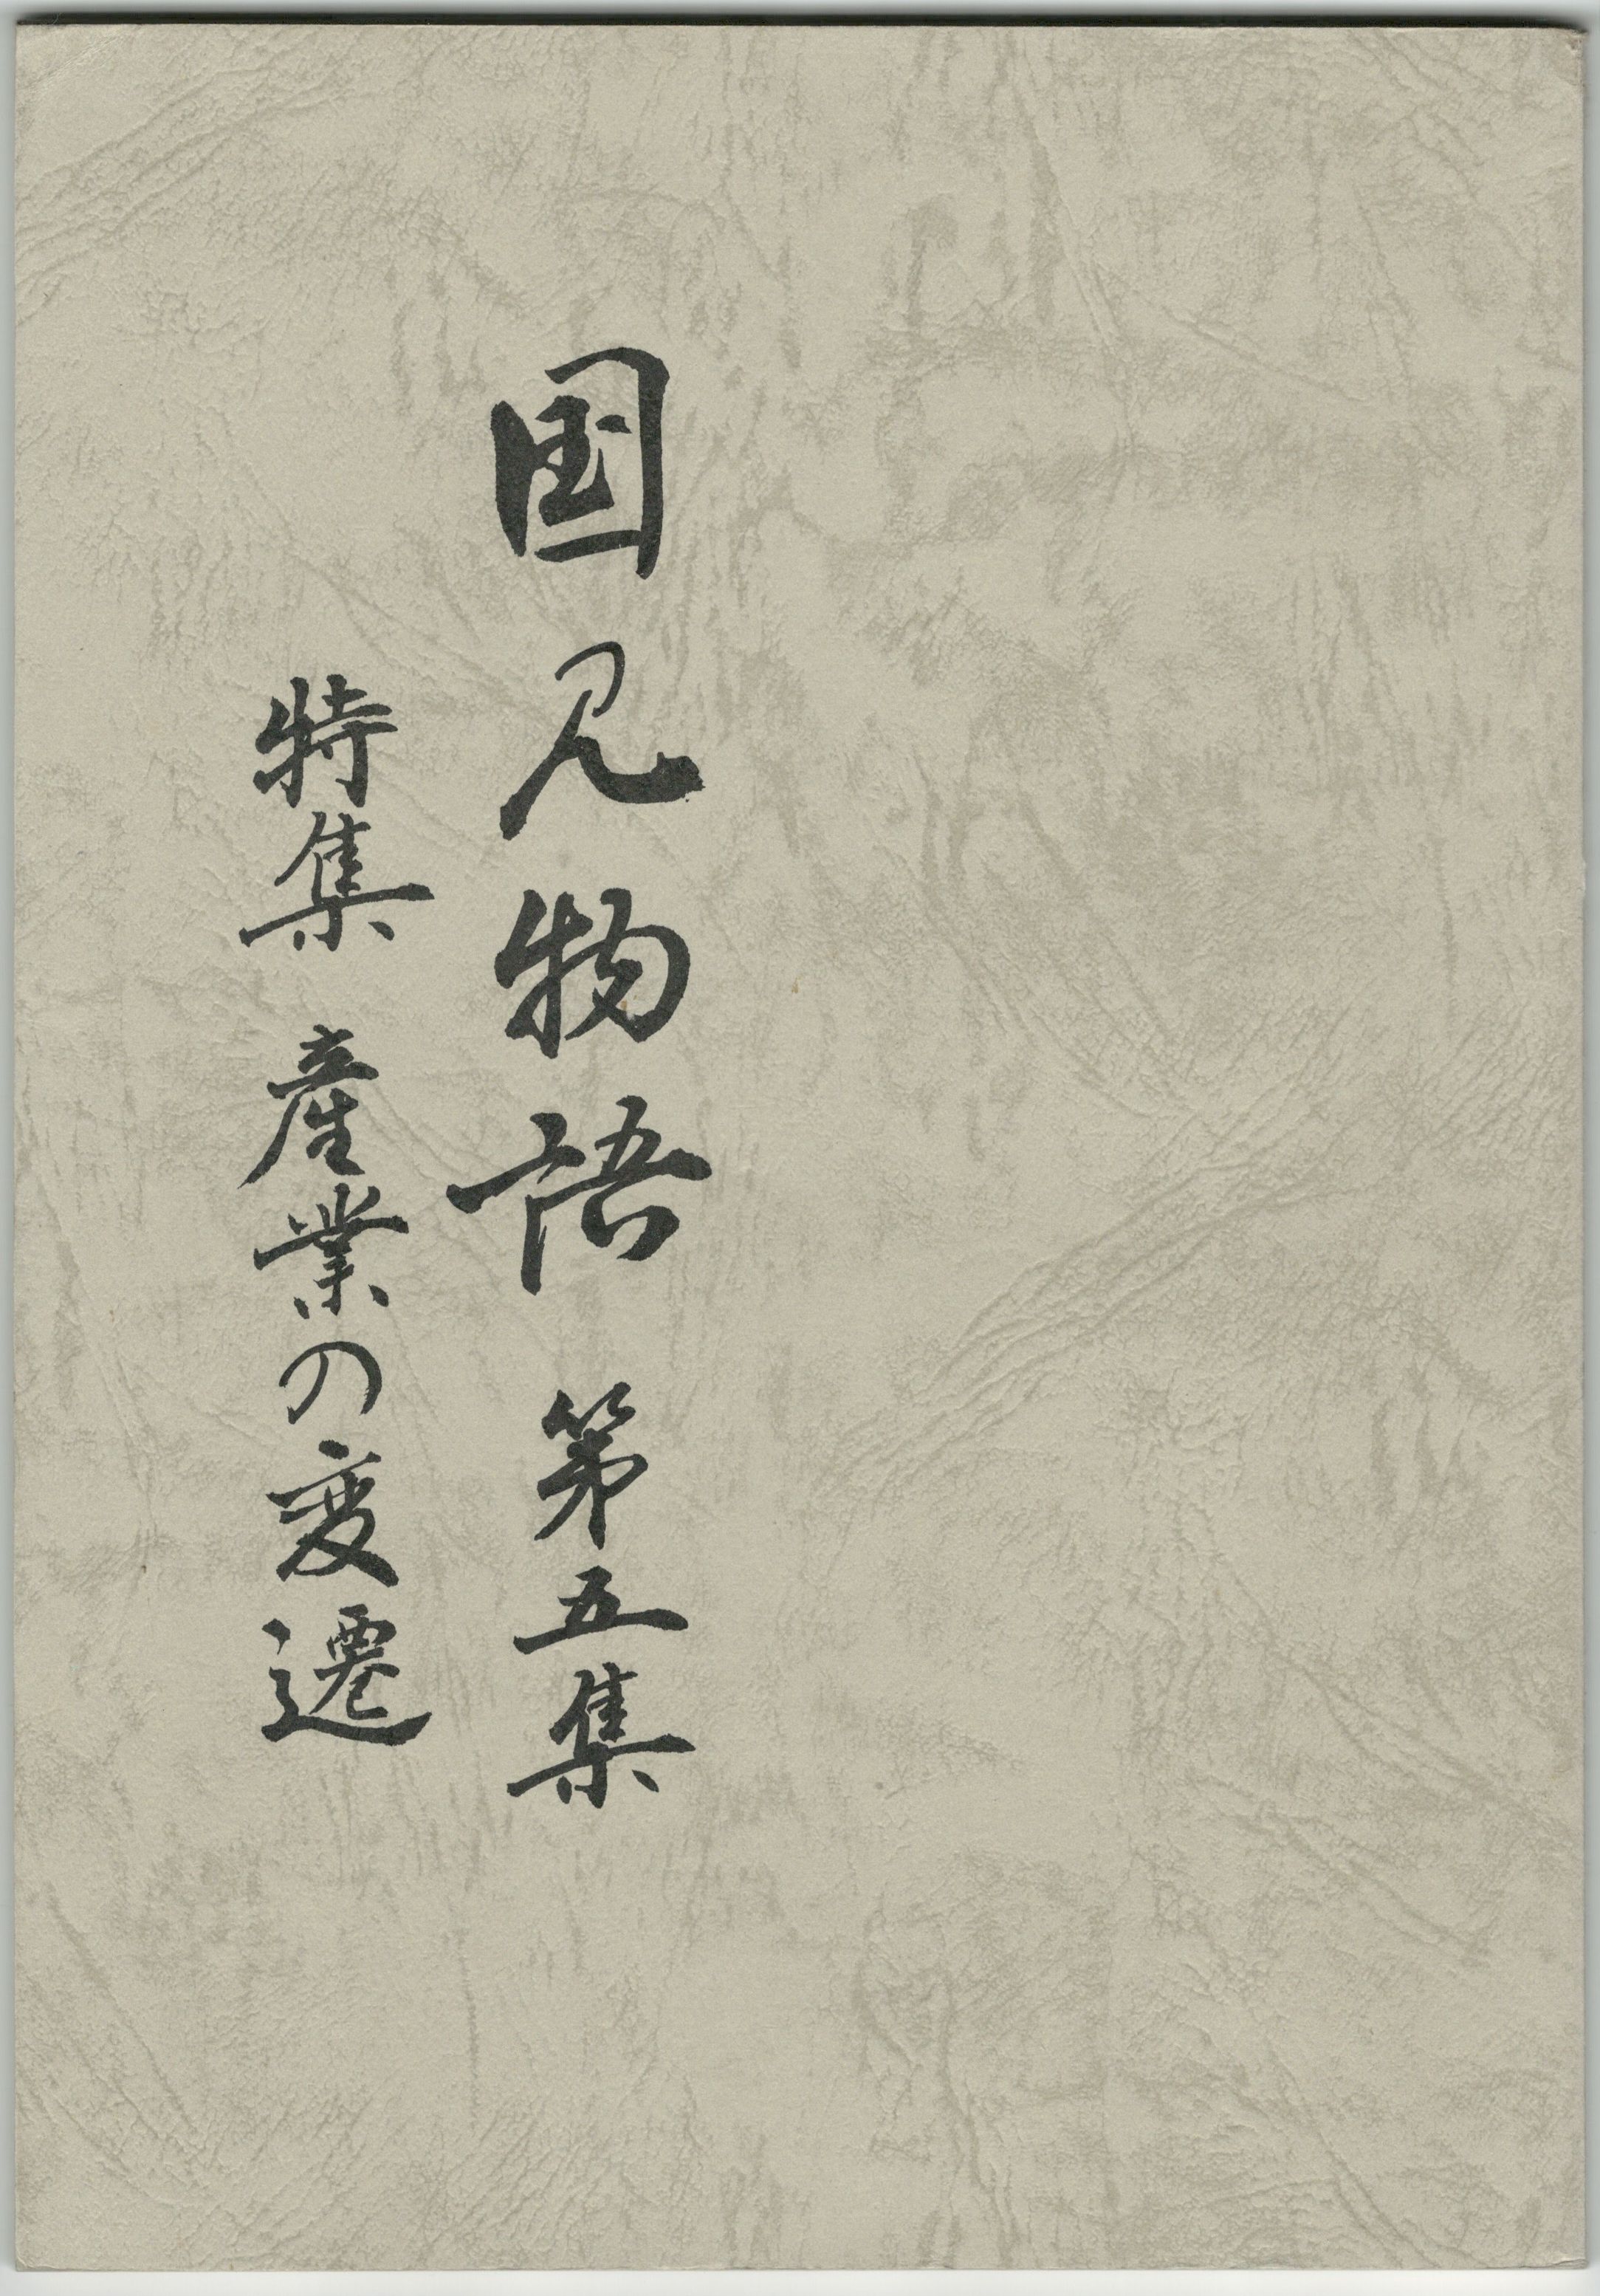 国見物語 第五集
特集 産業の変遷